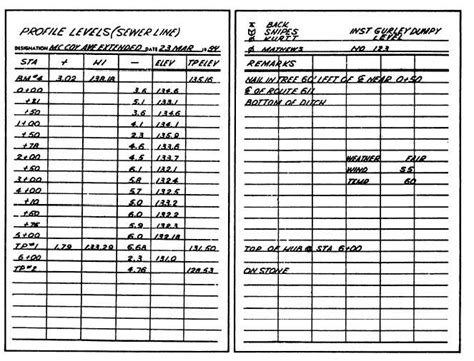 PROFILE LEVELS (SEWER LINE)
DESIGNATION MC COY AVE EXTENDED DATE 23 MAR 1984
STA + HI - ELEV TP ELEV
BM #4 3.02 138.18 135.16
0+00 3.6 134.6
+21 5.1 133.1
+50 3.6 134.6
1+00 4.1 134.1
+50 2.3 135.9
+78 4.6 133.6
2+00 4.5 133.7
+50 6.1 132.1
3+00 5.8 132.4
4+00 5.7 132.5
+10 5.0 133.2
+60 6.0 132.2
+75 5.9 132.3
5+00 6.0 132.18
TP #1 1.79 133.29 6.68 131.50
6+00 2.3 131.0
TP #2 4.76 128.53
BACK
SNIPES INST GURLEY DUMPY
KURTT LEVEL
MATHEWS NO 123
REMARKS
NAIL IN TREE 60' LEFT OF ℄ NEAR 0+50
℄ OF ROUTE 611
BOTTOM OF DITCH
WEATHER FAIR
WIND SS
TEMP 60
TOP OF HUB @ STA 6+00
ON STONE